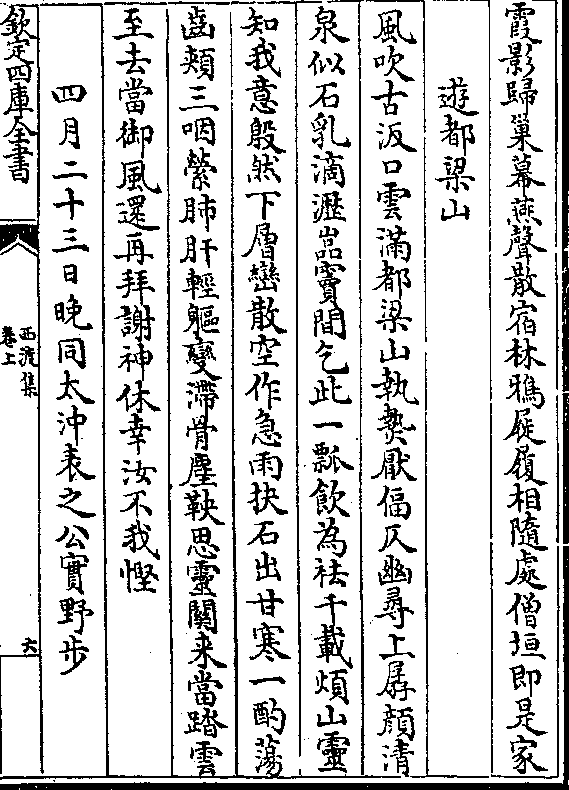 霞影歸巢幕燕聲散宿林鴉屐履相隨處僧垣即是家
遊都梁山
風吹古汳口雲滿都梁山執熱厭偪仄幽尋上孱顔清
泉似石乳滴瀝嵓竇間乞此一瓢飲為祛千載煩山靈
知我意殷然下層巒散空作急雨抉石出甘寒一酌蕩
齒頰三咽縈肺肝輕軀變滯骨塵鞅思靈關来當踏雲
至去當御風還再拜謝神休幸汝不我慳
四月二十三日晚同太沖表之公實野步
欽定四庫全書
西渡集
卷上
六